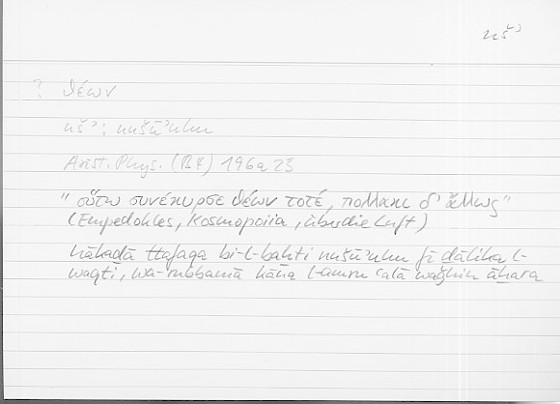 nšʾ
? θέων
nšʾ : nušūʾuhu
Arist. Phys. (B4) 196a 23
" οὕτω συνέκυρσε θέων τοτέ, πολλακι δ' ἄλλως"
(Empedokles, Kosmopoiia, über die Luft)
hākaḏā ttafaqa bi-l-baḫti nušūʾuhu fī ḏālika l-
waqti, wa-rubbamā kāna l-amru ʿalā waǧhin āḫara